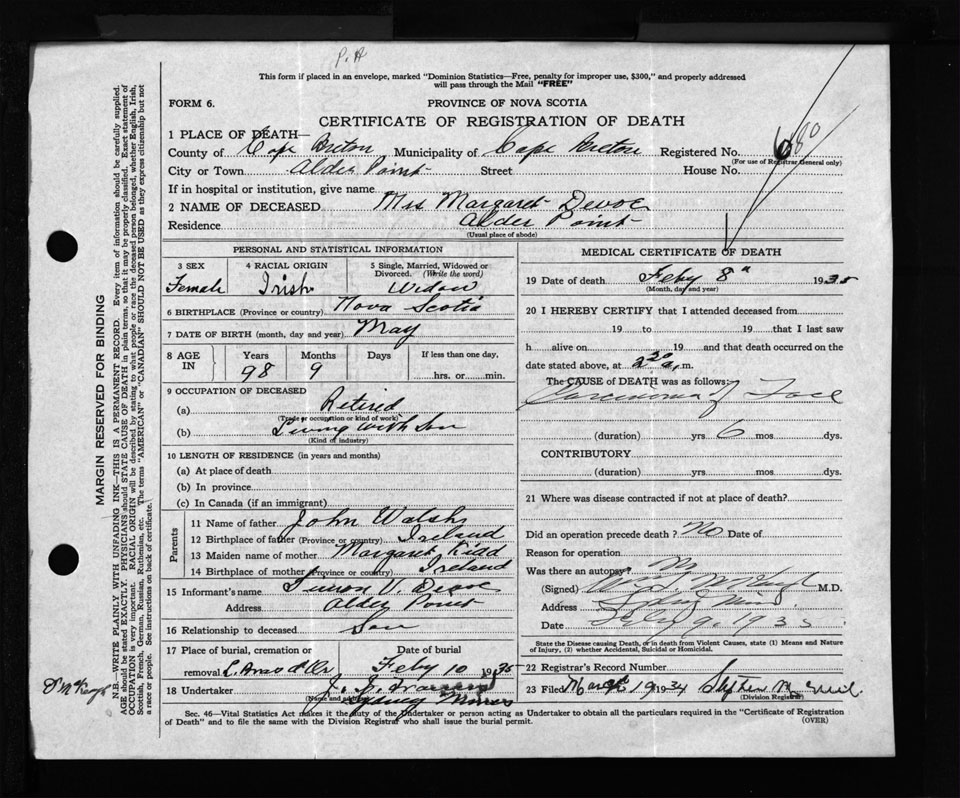 P.A
This form if placed in an envelope, marked "Dominion Statistics—Free, penalty for improper use, $300," and properly addressed
will pass through the Mail "FREE"
FORM 6.
PROVINCE OF NOVA SCOTIA
CERTIFICATE OF REGISTRATION OF DEATH
1 PLACE OF DEATH—
County of Cape Breton Municipality of Cape Breton Registered No. 680
(For use of Registrar General only)
City or Town Alder Point Street House No.
If in hospital or institution, give name
2 NAME OF DECEASED Mrs Margaret Devoe
Residence Alder Point
(Usual place of abode)
PERSONAL AND STATISTICAL INFORMATION
3 SEX 4 RACIAL ORIGIN 5 Single, Married, Widowed or Divorced. (Write the word)
Female Irish Widow
6 BIRTHPLACE (Province or country) Nova Scotia
7 DATE OF BIRTH (month, day and year) May
8 AGE IN Years Months Days If less than one day,
98 9 hrs. or min.
9 OCCUPATION OF DECEASED
(a) Retired
(Trade or occupation or kind of work)
(b) Living with Son
(Kind of industry)
10 LENGTH OF RESIDENCE (in years and months)
(a) At place of death
(b) In province
(c) In Canada (if an immigrant)
Parents
11 Name of father John Walsh
12 Birthplace of father (Province or country) Ireland
13 Maiden name of mother Margaret Kidd
14 Birthplace of mother (Province or country) Ireland
15 Informant's name Simon V. Devoe
Address Alder Point
16 Relationship to deceased Son
17 Place of burial, cremation or removal Date of burial
Feby 10 1935
18 Undertaker J. J.
(Name and address)
Sydney Mines
MEDICAL CERTIFICATE OF DEATH
19 Date of death Feby 8" 1935
(Month, day and year)
20 I HEREBY CERTIFY that I attended deceased from
19 to 19 that I last saw
h alive on 19 and that death occurred on the
date stated above, at 2 20 a. m.
The CAUSE of DEATH was as follows:
Carcinoma of Face
(duration) yrs 6 mos. dys.
CONTRIBUTORY
(duration) yrs. mos. dys.
21 Where was disease contracted if not at place of death?
Did an operation precede death? No Date of
Reason for operation
Was there an autopsy? No
(Signed) M.D.
Address Sydney Mines
Date Feby 9. 1935
State the Disease causing Death, or in death from Violent Causes, state (1) Means and Nature
of Injury, (2) whether Accidental, Suicidal or Homicidal.
22 Registrar's Record Number
23 Filed 1934 Stephen
(Division Registrar)
Sec. 46—Vital Statistics Act makes it the duty of the Undertaker or person acting as Undertaker to obtain all the particulars required in the "Certificate of Registration
of Death" and to file the same with the Division Registrar who shall issue the burial permit.
(OVER)
MARGIN RESERVED FOR BINDING
N.B.—WRITE PLAINLY WITH UNFADING INK—THIS IS A PERMANENT RECORD. Every item of information should be carefully supplied.
AGE should be stated EXACTLY. PHYSICIANS should STATE CAUSE OF DEATH in plain terms, so that it may be properly classified. Exact statement of
OCCUPATION is very important. RACIAL ORIGIN will be described by stating to what people or race the deceased person belonged, whether English, Irish,
Scottish, French, German, Russian, Ruthenian, etc. The terms "AMERICAN" or "CANADIAN" SHOULD NOT BE USED as they express citizenship but not
a race or people. See instructions on back of certificate.